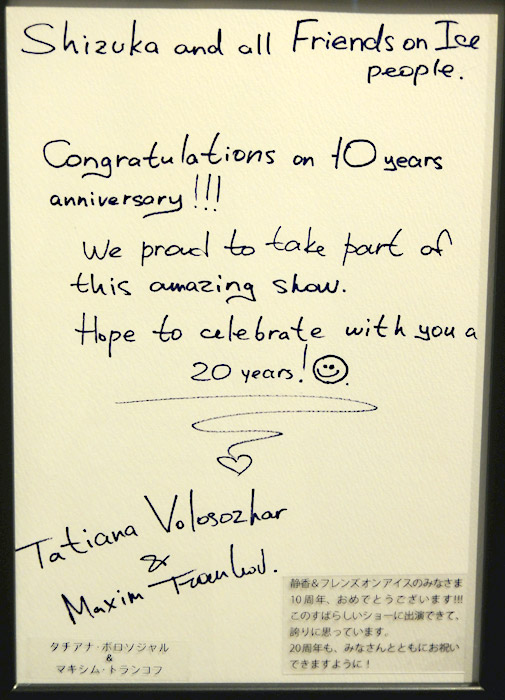 Shizuka and all Friends on Ice
people.
Congratulations on 10 years
anniversary!!!
We proud to take part of
this amazing show.
Hope to celebrate with you a
20 years!
Tatiana Volosozhar
&
Maxim Trankov.
静香&フレンズオンアイスのみなさま
10周年、おめでとうございます!!!
このすばらしいショーに出演できて、
誇りに思っています。
20周年も、みなさんとともにお祝い
できますように！
タチアナ・ボロソジャル
&
マキシム・トランコフ